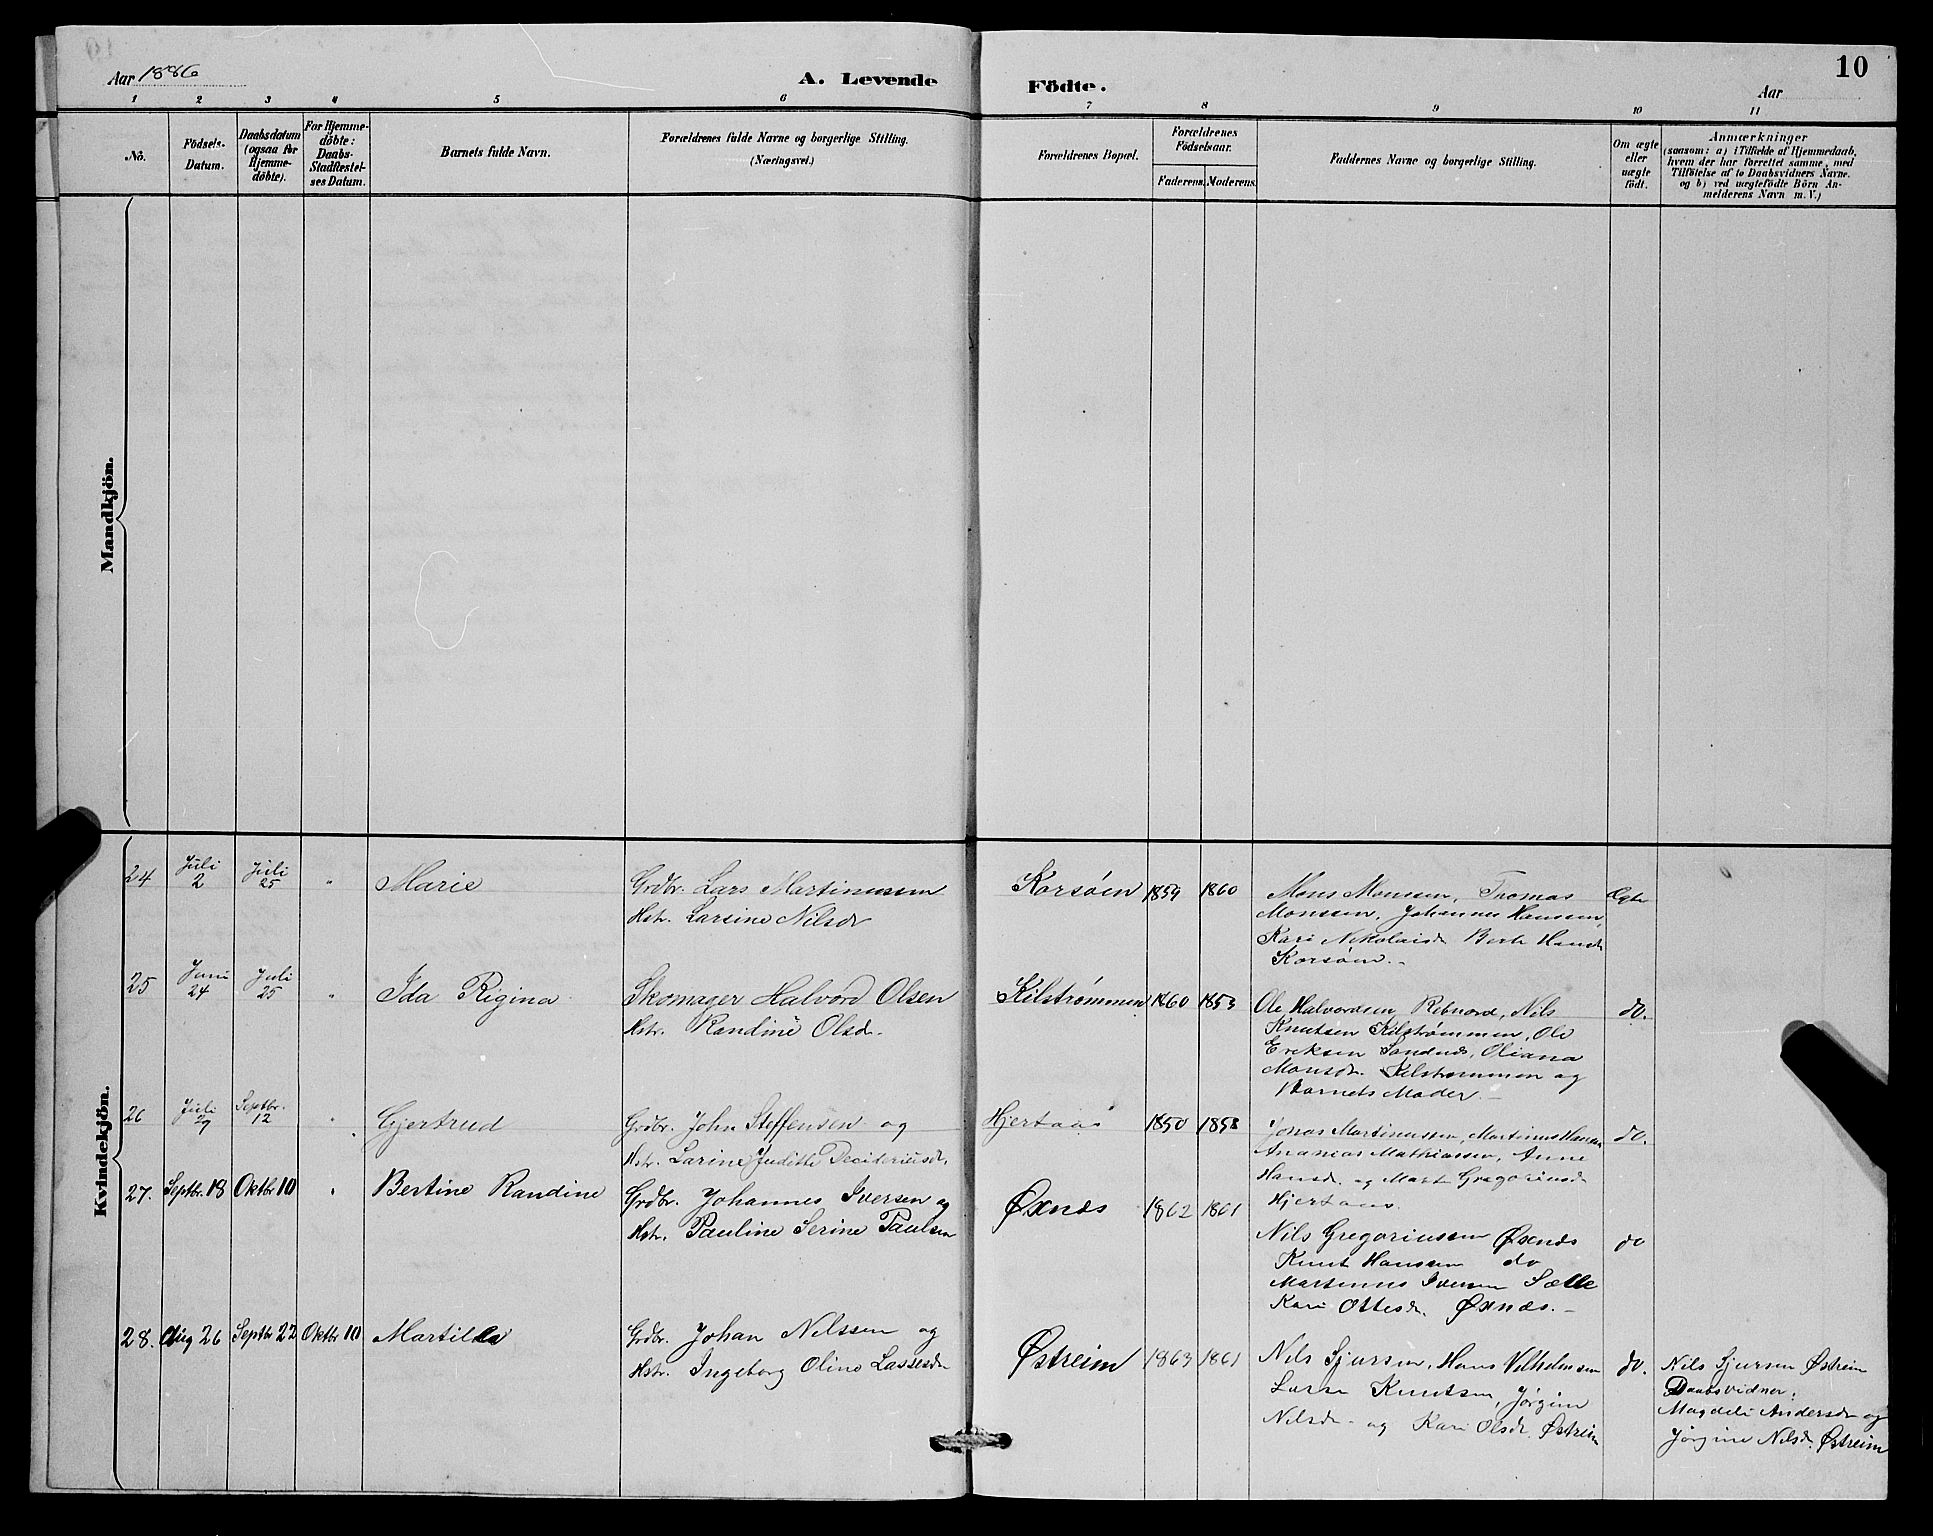 10
Aar 1886
A. Levende
Födte.
Aar
1 2 3 4 5 6 7 8 9 10 11
No.
Födsels-
Datum.
Daabsdatum
(ogsaa for
Hjemme-
döbte).
For Hjemme-
döbte:
Daabs-
Stadfæstel-
ses Datum.
Barnets fulde Navn.
Forældrenes fulde Navne og borgerlige Stilling.
(Næringsvei.)
Forældrenes Bopæl.
Forældrenes
Födselsaar.
Faderens. Moderens.
Faddernes Navne og borgerlige Stilling.
Om ægte
eller
uægte
födt.
Anmærkninger
(saasom: a) i Tilfælde af Hjemmedaab,
hvem der har forrettet samme, med
Tilföielse af to Daabsvidners Navne.
og b) ved uægtefödte Börn An-
melderens Navn m. V.)
Mandkjön.
Kvindekjön.
24
Juli
2
Juli
25
"
Marie
Grdbr. Lars Martinussen
Hstr. Larsine Nilsdr
Korsøen
1859
1860
Mons Monsen, Thomas
Monssen, Johannes Hanssen,
Kari Nikolaisdr Berte Hansdr
Korsøen.
Ægte
25
Juni
24
Juli
25
"
Ida Rigina
Skomager Halvord Olsen
Hstr. Randine Olsdr.
Kilstrømmen
1860
1853
Ole Halvordsen Rebnord, Nils
Knutsen Kilstrømmen, Ole
Eriksen Sandnes, Oliana
Monsdr. Kilstrømmen og
Barnets Moder.
do.
26
Juli
29
Septbr.
12
"
Gjertrud
Grdbr. John Steffensen og
Hstr. Larine Juditte Decideriusdr.
Hjertaas
1850
1858
Jonas Martinussen, Martinus Hansen
Ananias Mathiassen, Anne
Hansdr. og Mart Gregoriusdr
Hjertaas.
do.
27.
Septbr. 18
Oktbr 10
"
Bertine Randine
Grdbr. Johannes Iversen og
Hstr. Pauline Serine Paulsen
Øxnes
1862
1861
Nils Gregoriussen Øxnes
Knut Hanssen do
Martinus Iversen Sælle
Kari Ottesdr. Øxnes.
do
28.
Aug 26
Septbr 22
Oktbr 10
Martilda
Grdbr. Johan Nilssen og
Hstr. Ingeborg Oline Lassesdr
Østreim
1863
1861
Nils Sjursen, Hans Vilhelmsen
Lasse Knutsen, Jørgine
Nilsdr. og Kari Olsdr. Østreim
do.
Nils Sjursen Østreim
Daabsvidner:
Magdeli Andersdr og
Jørgine Nilsdr. Østreim